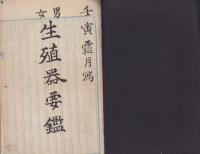 壬寅霜月写
男女
生殖器要鑑